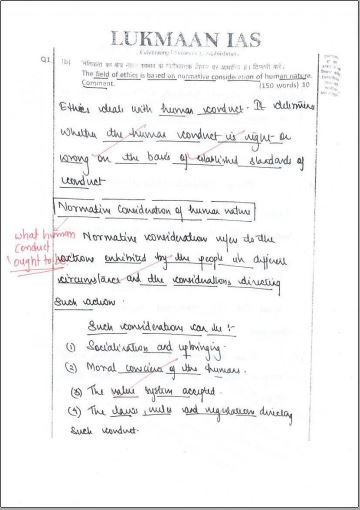 LUKMAAN IAS
Q1
(b)
The field of ethics is based on normative consideration of human nature.
Comment.
(150 words) 10
Ethics deals with human conduct. It determines
whether the human conduct is right or
wrong on the basis of established standards of
conduct
Normative Consideration of human nature
what human
conduct
ought to be
Normative consideration refers to the
actions exhibited by the people in different
circumstances and the considerations directing
such action.
Such consideration can be :-
(1) Socialisation and upbringing.
(2) Moral conscience of the humans.
(3) The value system accepted.
(4) The laws, rules and regulations directing
such conduct.